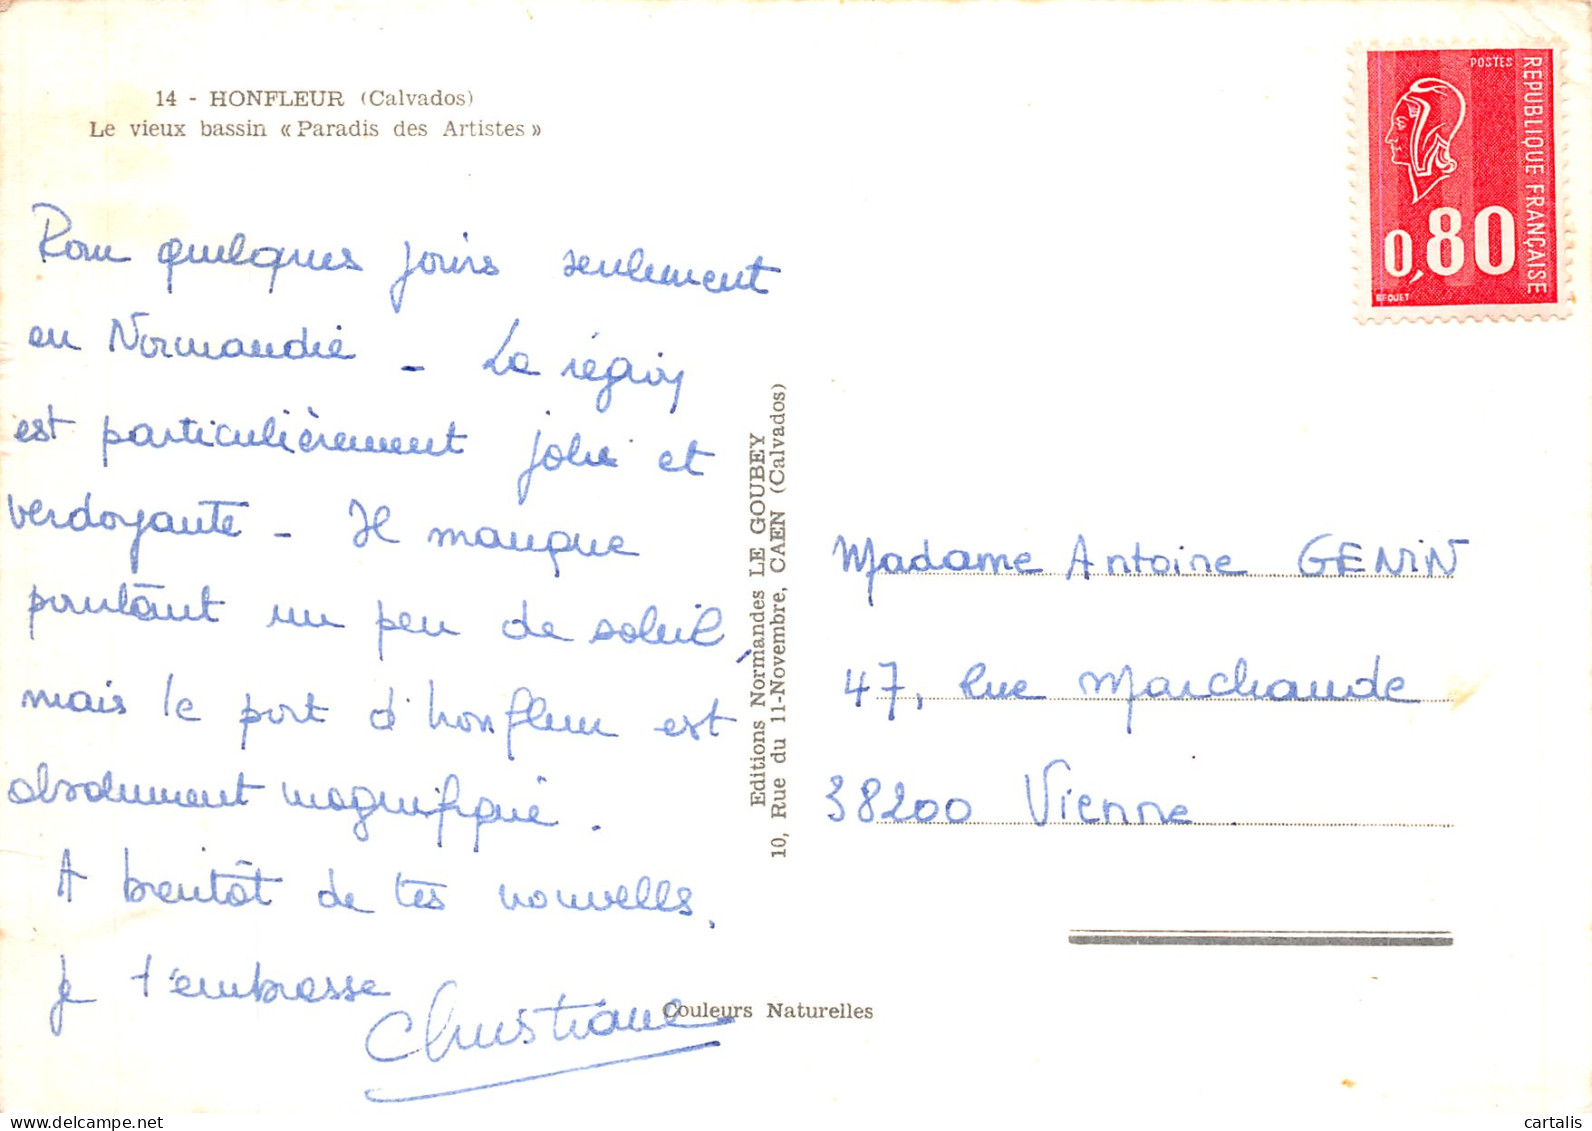 14 - HONFLEUR (Calvados)
Le vieux bassin « Paradis des Artistes »
Pour quelques jours seulement
en Normandie - La région
est particulièrement jolie et
verdoyante - Il manque
pourtant un peu de soleil,
mais le port d'honfleur est
absolument magnifique.
A bientôt de tes nouvelles.
Je t'embrasse
Christiane
Couleurs Naturelles
Editions Normandes LE GOUBEY
10, Rue du 11-Novembre, CAEN (Calvados)
POSTES
REPUBLIQUE FRANÇAISE
0,80
BEQUET
Madame Antoine GENIN
47, Rue Marchande
38200 Vienne
www.delcampe.net
cartalis